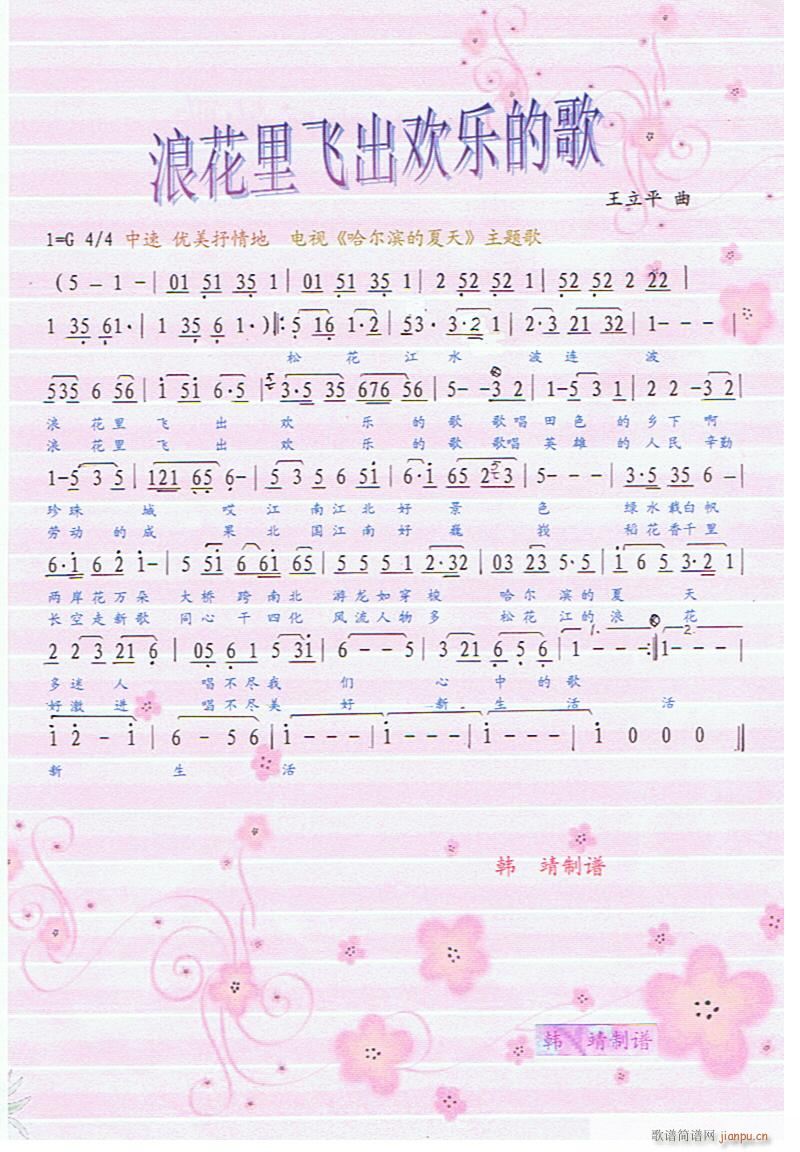 浪花里飞出欢乐的歌
王立平 曲
1=G 4/4 中速 优美抒情地 电视《哈尔滨的夏天》主题歌
(5 - 1 - | 01 51 35 1 | 01 51 35 1 | 2 52 52 1 | 52 52 2 22 |
1 35 61· | 1 35 6 1· )‖: 5 16 1·2 | 53· 3·2 1 | 2·3 21 32 | 1 - - - |
松 花 江 水 波 连 波
535 6 56 | 1 51 6·5 | 3·5 35 676 56 | 5 - - 3 2 | 1 - 5 3 1 | 2 2 - 3 2 |
浪 花 里 飞 出 欢 乐 的 歌 歌 唱 田 色 的 乡 下 啊
浪 花 里 飞 出 欢 乐 的 歌 歌 唱 英 雄 的 人 民 辛勤
1 - 5 3 5 | 121 65 6 - | 5 3 5 6 51 | 6·1 65 2 3 | 5 - - - | 3·5 35 6 - |
珍 珠 城 哎 江 南 江 北 好 景 色 绿 水 载 白 帆
劳 动 的 成 果 北 国 江 南 好 巍 峨 稻 花 香 千 里
6·1 6 2 1 - | 5 51 6 61 65 | 5 5 5 1 2·32 | 03 23 5·5 | 1 6 5 3·2 1 |
两 岸 花 万 朵 大 桥 跨 南 北 游 龙 如 穿 梭 哈 尔 滨 的 夏 天
长 空 走 新 歌 同 心 干 四 化 风 流 人 物 多 松 花 江 的 浪 花
2 2 3 21 6 | 05 6 1 5 31 | 6 - - 5 | 3 21 6 5 6 | 1. 1 - - - :‖ 2. 1 - - - |
多 迷 人 唱 不 尽 我 们 心 中 的 歌
好 激 进 唱 不 尽 美 好 新 生 活 活
1 2 - 1 | 6 - 5 6 | 1 - - - | 1 - - - | 1 - - - | 1 0 0 0 ‖
新 生 活
韩 靖制谱
韩 靖制谱
歌谱简谱网 jianpu.cn